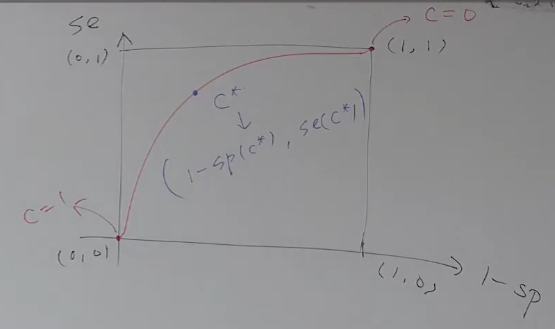 se
c=0
(0,1)
(1,1)
c*
↓
(1-sp(c*), se(c*))
c=1
(0,0)
(1,0)
1-sp